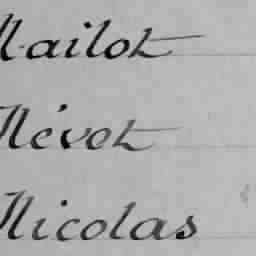 Nailot
Névot
Nicolas